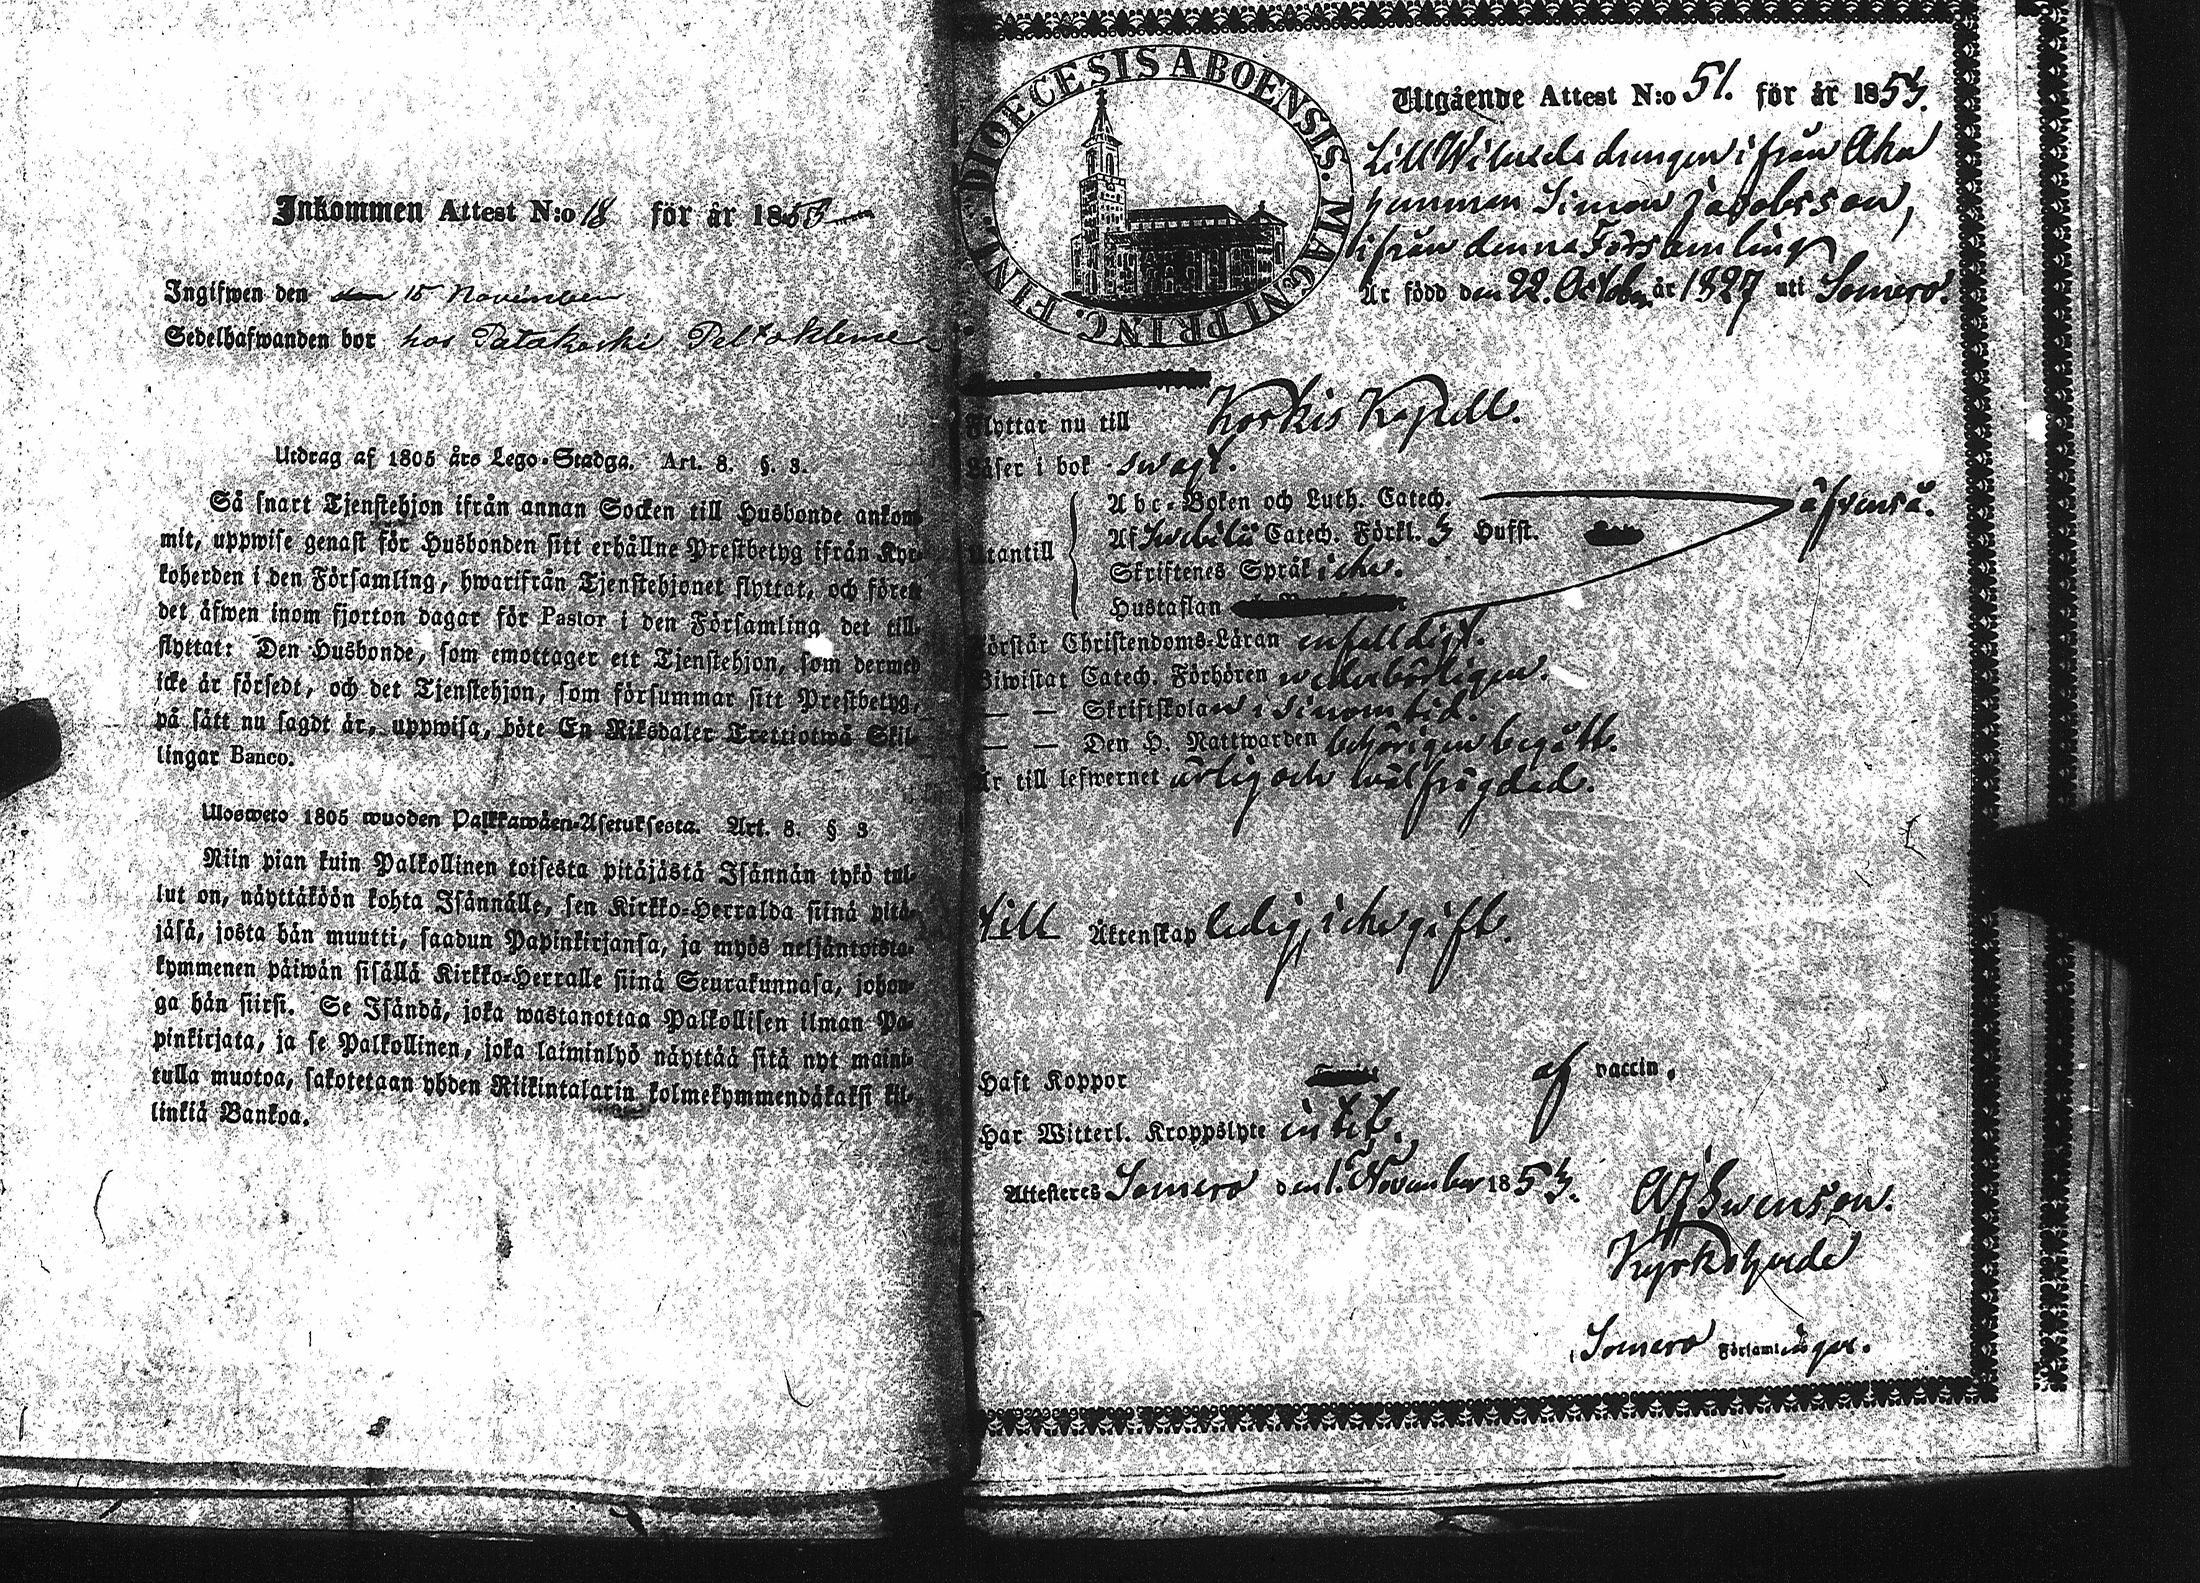 Inkommen Attest N:o 18 för år 1853
Ingifwen den 15 November
Sedelhafwanden bor hos Patakoski
Utdrag af 1805 års Lego-Stadga. Art. 8. §. 3.
Så snart Tjenstehjon ifrån annan Socken till Husbonde ankom-
mit, uppwise genast för Husbonden sitt erhållne Prestbetyg ifrån Kyr-
koherden i den Församling, hwarifrån Tjenstehjonet flyttat, och förete
det äfwen inom fjorton dagar för Pastor i den Församling det till-
flyttat: Den Husbonde, som emottager ett Tjenstehjon, som dermed
icke är försedt, och det Tjenstehjon, som försummar sitt Prestbetyg,
på sätt nu sagdt är, uppwisa, böte En Riksdaler Trettiotwå Skil-
lingar Banco.
Ulosweto 1805 wuoden Palkkawäen-Asetuksesta. Art. 8. § 3
Niin pian kuin Palkollinen toisesta pitäjästä Isännän tykö tul-
lut on, näyttäköön kohta Isännälle, sen Kirkko-Herralda siinä pitä-
jäsä, josta hän muutti, saadun Papinkirjansa, ja myös neljäntoista-
kymmenen päiwän sisällä Kirkko-Herralle siinä Seurakunnasa, johon-
ga hän siirsi. Se Isändä, joka wastanottaa Palkollisen ilman Pa-
pinkirjata, ja se Palkollinen, joka laiminlyö näyttää sitä nyt maini-
tulla muotoa, sakotetaan yhden Riikintalarin kolmekymmendäkaksi kil-
linkiä Bankoa.
DIOECESIS ABOENSIS. MAGNI PRINC. FINL.
Utgående Attest N:o 51. för år 1853.
drengen ifrån
Simon Jacobsson,
ifrån denna Församling
Är född den 22. October år 1827 uti Somero.
Flyttar nu till Korkis Kapell.
Läser i bok swagt.
Abc-Boken och Luth. Catech. äfvenså.
Utantill Af Svebilii Catech. Förkl. 3 Hufst.
Skriftenes Språk icke.
Hustaflan
Förstår Christendoms-Läran enfalldigt.
Biwistat Catech. Förhören wederbörligen.
— — Skriftskolan i sinom tid.
— — Den H. Nattwarden behörigen begått.
Är till lefwernet ärlig och wälfrägdad.
till Äktenskap ledig, icke gift.
Haft Koppor af vaccin.
Har Witterl. Kroppslyte intet.
Attesteres Somero den 1. November 1853.
Swenson.
Kyrkoherde
i Somero Församlingar.